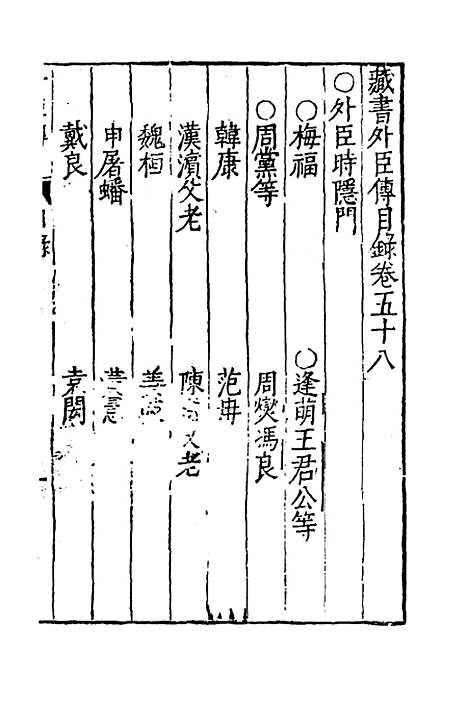 藏書外臣傳目錄卷五十八
○外臣時隱門
○梅福 ○逢萌王君公等
○周黨等 周燮馮良
韓康 范冉
漢濱父老 陳 父老
魏桓 姜
申屠蟠
戴良 袁閎